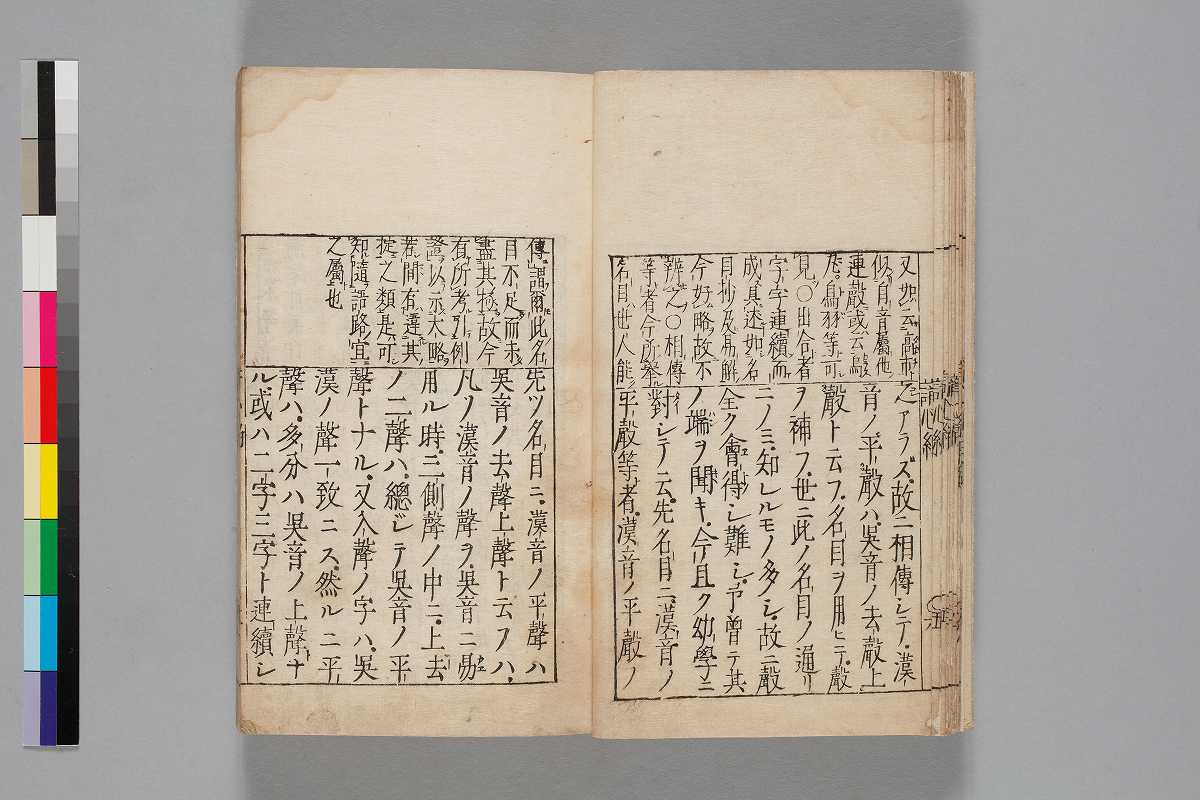 又如云
似自音屬他
連聲或云
等可
見〇出合者
字字連續而
成具述如名
目抄及易解
今好略故不
辨之〇相傳
等者今所擧
名目世人能
アラズ。故ニ相傳シテ。漢
音ノ平聲ハ。吳音ノ去聲上
聲ト云フ。名目ヲ用ヒテ。聲
ヲ補フ。世ニ此ノ名目ノ通リ
ニノミ。知レルモノ多シ。故ニ聲
全ク會得シ難シ。予曾テ其
ノ端ヲ聞キ。今且ク幼學ニ
對シテ云。先名目ニ。漢音ノ
平聲等者。漢音ノ平聲ノ
傳謂爾此名
目不足而未
盡其極故今
有所考引例
證以示大略
若間有違其
掟之類是可
知隨語路宜
之屬也
先ツ名目ニ。漢音ノ平聲ハ
吳音ノ去聲上聲ト云フハ。
凡ソ漢音ノ聲ヲ。吳音ニ易ヘ
用ル時。三側聲ノ中ニ。上去
ノ二聲ハ。總ジテ吳音ノ平
聲トナル。又入聲ノ字ハ。吳
漢ノ聲一致ニス。然ルニ平
聲ハ。多分ハ吳音ノ上聲ナ
ル。或ハ二字三字ト連續シ